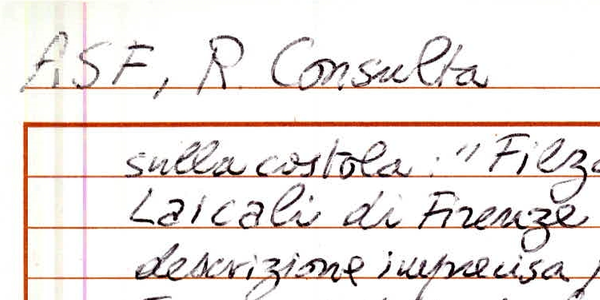 ASF, R. Consulta
sulla costola: "Filza
Laicali di Firenze
descrizione imprecisa